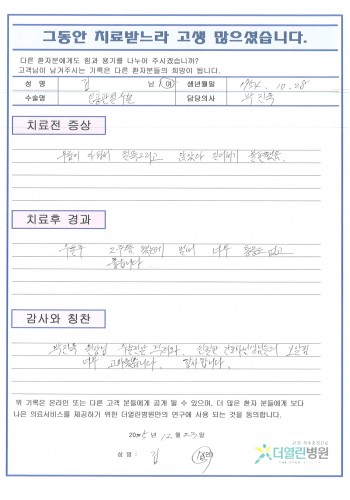 그동안 치료받느라 고생 많으셨습니다.
다른 환자분에게도 힘과 용기를 나누어 주시겠습니까?
고객님이 남겨주시는 기록은 다른 환자분들의 희망이 됩니다.
성 명 김 남 / 여 생년월일 1954. 10. 28
수술명 인공관절수술 담당의사 박진욱
치료전 증상
무릎이 아파서 앉았다 일어서기 불편했음.
치료후 경과
2주 너무 통증도 없고
좋습니다.
감사와 칭찬
박진욱 원장님
너무 고마웠습니다. 감사합니다.
위 기록은 온라인 또는 다른 고객 분들에게 공개 될 수 있으며, 더 많은 환자 분들에게 보다
나은 의료서비스를 제공하기 위한 더열린병원만의 연구에 사용 되는 것을 동의합니다.
2025년 12월 23일
성 명 : 김 (인)
더열린병원